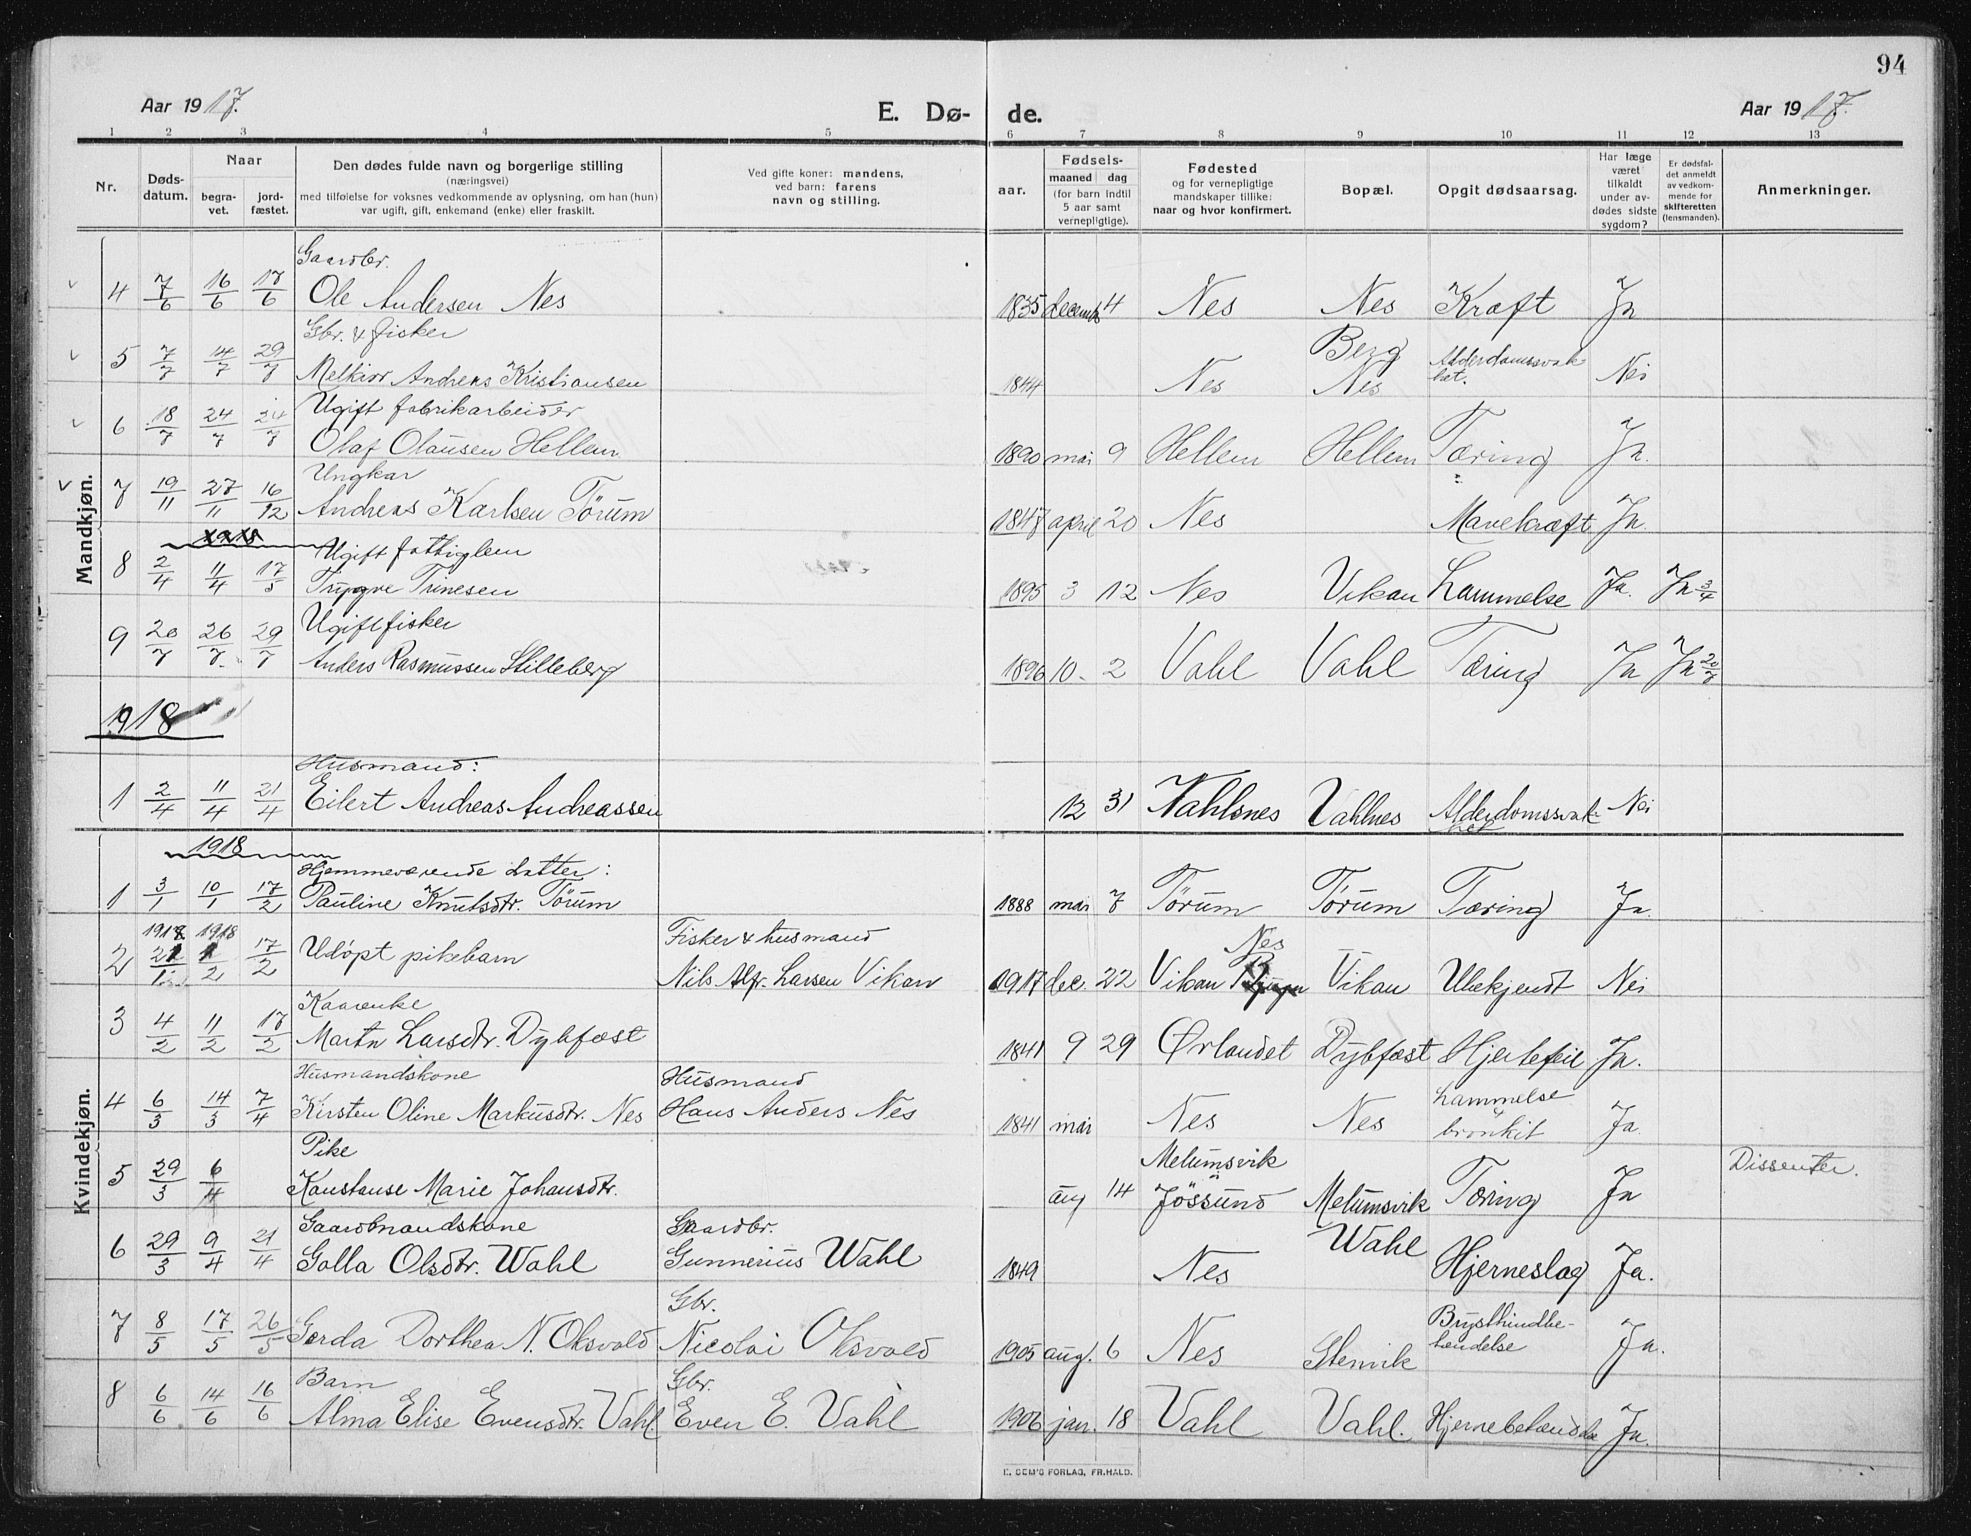 94
Aar 1917.
E. Dø-
de.
Aar 1917.
1 2 3 4 5 6 7 8 9 10 11 12 13
Nr.
Døds-
datum.
Naar
begra-
vet.
jord-
fæstet.
Den dødes fulde navn og borgerlige stilling
(næringsvei)
med tilføielse for voksnes vedkommende av oplysning, om han (hun)
var ugift, gift, enkemand (enke) eller fraskilt.
Ved gifte koner: mandens,
ved barn: farens
navn og stilling.
aar.
Fødsels-
maaned dag
(for barn indtil
5 aar samt
vernepligtige).
Fødested
og for vernepligtige
mandskaper tillike:
naar og hvor konfirmert.
Bopæl.
Opgit dødsaarsag.
Har læge
været
tilkaldt
under av-
dødes sidste
sygdom?
Er dødsfal-
det anmeldt
av vedkom-
mende for
skifteretten
(lensmanden).
Anmerkninger.
Mandkjøn.
Gaardbr.
4 7/6 16/6 17/6 Ole Andersen Nes 1835 decemb 4 Nes Nes Kræft Ja
Gbr. & fisker
5 7/7 14/7 29/7 Melkior Andreas Kristiansen 1844 Nes Berg Nes Alderdomssvak
het. Nei
Ugift fabrikarbeider
6 18/7 24/7 24/7 Olaf Olausen Hellem 1890 mai 9 Hellem Hellem Tæring Ja.
Ungkar
7 19/11 27/11 16/12 Andreas Karlsen Tørum 1847 april 20 Nes Mavekræft Ja.
1918
Ugift fattiglem
8 2/4 11/4 17/5 Trygve Trinesen 1895 3 12 Nes Vikan Lammelse Ja. Ja 3/4
Ugift fisker
9 20/7 26/7 29/7 Anders Rasmussen Stilleberg 1896 10. 2 Vahl Vahl Tæring Ja Ja 20/7
1918
Husmand:
1 2/4 11/4 21/4 Eilert Andreas Andreassen 12 31 Vahlsnes Vahlnes Alderdomssvak-
het Nei
Kvindekjøn.
1918
Hjemmeværende datter:
1 3/1 10/1 17/2 Pauline Knutsdtr. Tørum 1888 mai 7 Tørum Tørum Tæring Ja.
1918 1918
Fisker & husmand
Nes
2 17/2 Udøpt pikebarn Nils Alfr. Larsen Vikan 1917 dec. 22 Vikan Vikan Ubekjendt Nei
Kaarenke
3 4/2 11/2 17/2 Martn Larsdtr. Dybfest 1841 9 29 Ørlandet Dybfest Hjertefeil Ja.
Husmandskone Husmand
4 6/3 14/3 7/4 Kirsten Oline Markusdtr. Nes Hans Anders Nes 1841 mai Nes Nes Lammelse
& bronkit Ja
Pike
Melumsvik
5 29/3 6/4 Konstanse Marie Johansdtr. aug 14 Jøssund Melumsvik Tæring Ja Dissenter.
Gaardbmandskone Gaardbr.
6 29/3 9/4 21/4 Golla Olsdtr. Wahl Gunnerius Wahl 1849 Nes Wahl Hjerneslag Ja.
Gbr.
7 8/5 17/5 26/5 Gerda Dorthea N. Oksvold Nicolai Oksvold 1905 aug. 6 Nes Stenvik Brysthindbe-
tændelse Ja.
Barn Gbr.
8 6/6 14/6 16/6 Alma Elise Evensdtr. Vahl. Even E. Vahl 1906 jan. 18 Vahl Vahl. Hjernebetændelse Ja.
E. SEM'S FORLAG, FR.HALD.